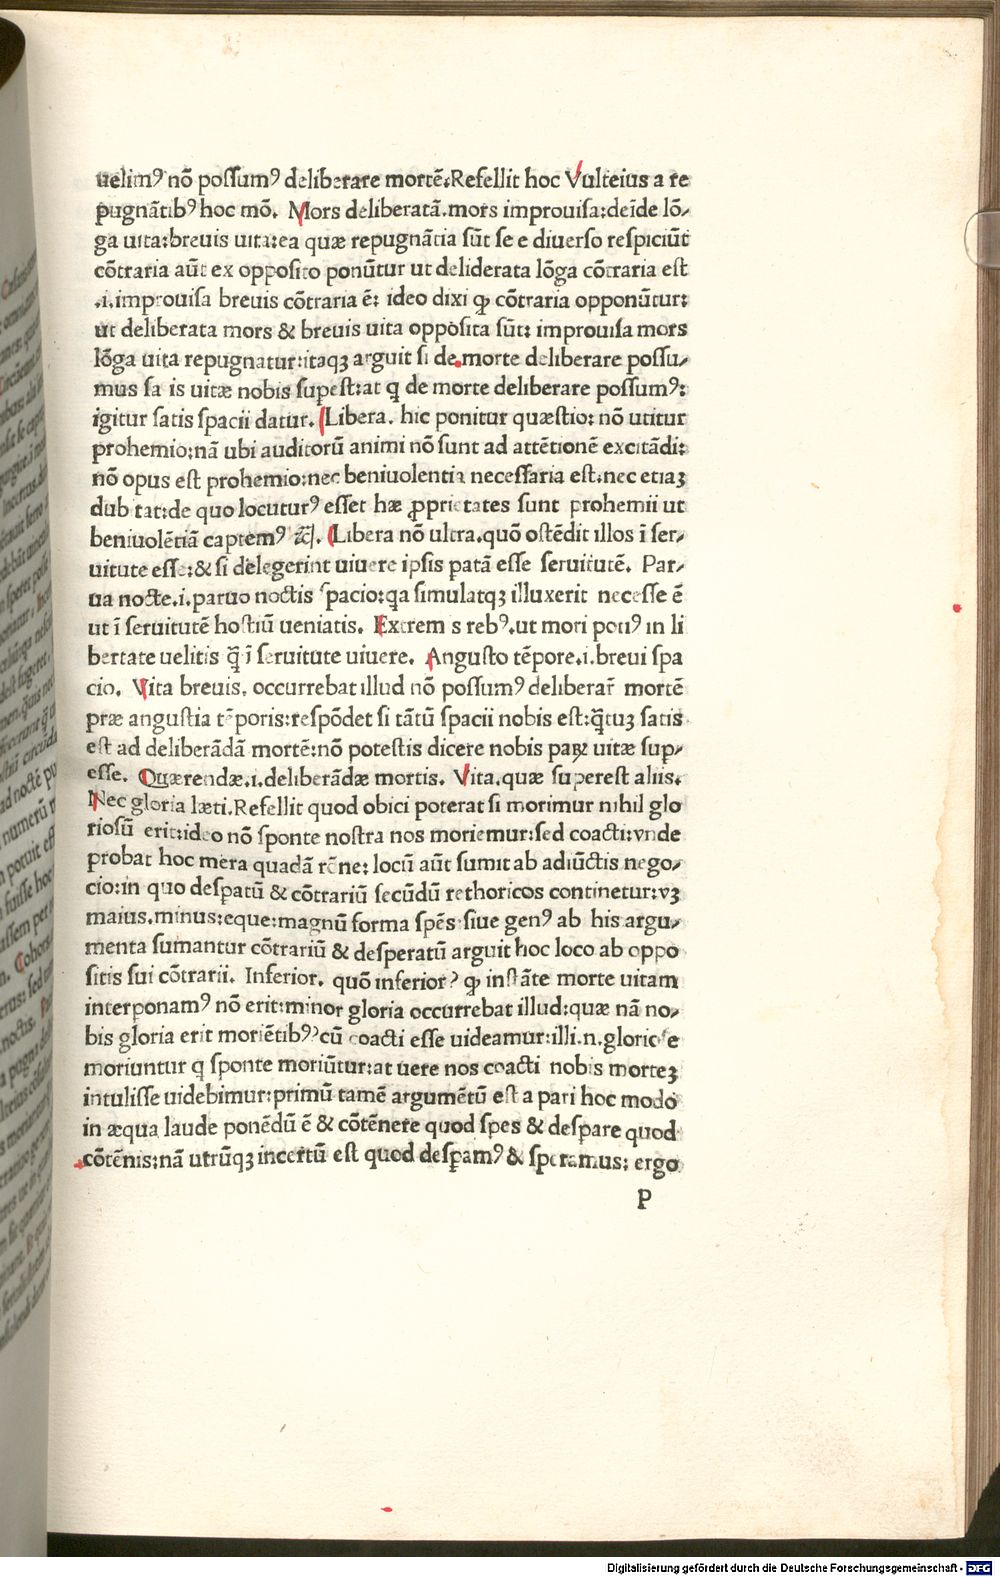 uelimꝰ nõ poſſumꝰ deliberare mortẽ.Refellit hoc Vulteius a re
pugnãtibꝰ hoc mõ. Mors deliberatã.mors improuiſa:deĩde lõ⸗
ga uita:breuis uita:ea quæ repugnãtia ſũt ſe e diuerſo reſpiciũt
cõtraria aũt ex oppoſito ponũtur ut deliderata lõga cõtraria eſt
.i.improuiſa breuis cõtraria ẽ: ideo dixi ꝙ cõtraria opponũtur:
ut deliberata mors & breuis uita oppoſita ſũt: improuiſa mors
lõga uita repugnatur:itaqꝫ arguit ſi de morte deliberare poſſu⸗
mus ſa is uitæ nobis ſupeſt:at q̃ de morte deliberare poſſumꝰ:
igitur ſatis ſpacii datur. Libera. hic ponitur quæſtio: nõ utitur
prohemio:nã ubi auditorũ animi nõ ſunt ad attẽtionẽ excitãdi:
nõ opus eſt prohemio:nec beniuolentia neceſſaria eſt.nec etiaꝫ
dub tat:de quo locuturꝰ eſſet hæ ꝓprietates ſunt prohemii ut
beniuolẽtiã captemꝰ ⁊c̃. Libera nõ ultra.quõ oſtẽdit illos ĩ ſer⸗
uitute eſſe:& ſi delegerint uiuere ipſis patã eſſe ſeruitutẽ. Par⸗
ua nocte.i.paruo noctis ſpacio:qa ſimulatqꝫ illuxerit neceſſe ẽ
ut ĩ ſeruitutẽ hoſtiũ ueniatis. Extrem s rebꝰ.ut mori potiꝰ in li
bertate uelitis q̃ ĩ ſeruitute uiuere. Anguſto tẽpore.i.breui ſpa
cio. Vita breuis. occurrebat illud nõ poſſumꝰ deliberar̃ mortẽ
præ anguſtia tẽporis:reſpõdet ſi tãtũ ſpacii nobis eſt:q̃tuꝫ ſatis
eſt ad deliberãdã mortẽ:nõ poteſtis dicere nobis paꝝ uitæ ſup⸗
eſſe. Quærendæ.i.deliberãdæ mortis. Vita.quæ ſupereſt aliis.
Nec gloria læti.Refellit quod obici poterat ſi morimur nihil glo
rioſũ erit:ideo nõ ſponte noſtra nos moriemur:ſed coacti:vnde
probat hoc mera quadã rõne: locũ aũt ſumit ab adiũctis nego⸗
cio:in quo deſpatũ & cõtrariũ ſecũdũ rethoricos continetur:vꝫ
maius.minus:eque:magnũ forma ſpẽs ſiue genꝰ ab his argu⸗
menta ſumantur cõtrariũ & deſperatũ arguit hoc loco ab oppo
ſitis ſui cõtrarii. Inferior. quõ inferior? ꝙ inſtãte morte uitam
interponamꝰ nõ erit:minor gloria occurrebat illud:quæ nã no⸗
bis gloria erit moriẽtibꝰ?cũ coacti eſſe uideamur:illi.n.glorioſe
moriuntur q̃ ſponte moriũtur:at uere nos coacti nobis morteꝫ
intuliſſe uidebimur:primũ tamẽ argumẽtũ eſt a pari hoc modo
in æqua laude ponẽdũ ẽ & cõtẽnere quod ſpes & deſpare quod
cõtẽnis:nã utrũqꝫ incertũ eſt quod deſꝑamꝰ & ſperamus: ergo
P
Digitalisierung gefördert durch die Deutsche Forschungsgemeinschaft - DFG